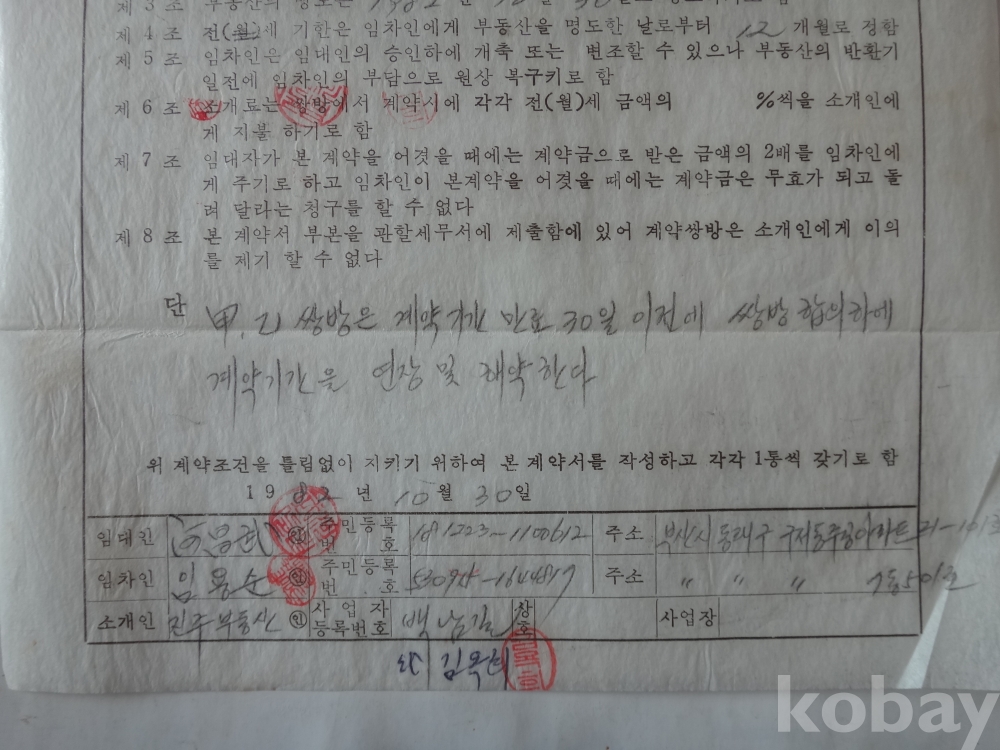 제 3 조 부동산의 명도는 1982년
제 4 조 전(월)세 기한은 임차인에게 부동산을 명도한 날로부터 12 개월로 정함
제 5 조 임차인은 임대인의 승인하에 개축 또는 변조할 수 있으나 부동산의 반환기
일전에 임차인의 부담으로 원상 복구키로 함
제 6 조 소개료는 쌍방에서 계약시에 각각 전(월)세 금액의 %씩을 소개인에
게 지불 하기로 함
제 7 조 임대자가 본 계약을 어겼을 때에는 계약금으로 받은 금액의 2배를 임차인에
게 주기로 하고 임차인이 본계약을 어겼을 때에는 계약금은 무효가 되고 돌
려 달라는 청구를 할 수 없다
제 8 조 본 계약서 부본을 관할세무서에 제출함에 있어 계약쌍방은 소개인에게 이의
를 제기 할 수 없다
단 甲.乙 쌍방은 계약기간 만료 30일 이전에 쌍방 합의하에
계약기간을 연장 및 해약한다
위 계약조건을 틀림없이 지키기 위하여 본 계약서를 작성하고 각각 1통씩 갖기로 함
1982년 10월 30일
임대인 ㊞ 주민등록번호 181223-1100612 주소 부산시 동래구
임차인 임용순 ㊞ 주민등록번호 주소 〃 〃 〃
소개인 진주부동산 ㊞ 사업자등록번호 백남길 상호 사업장
김옥희
kobay